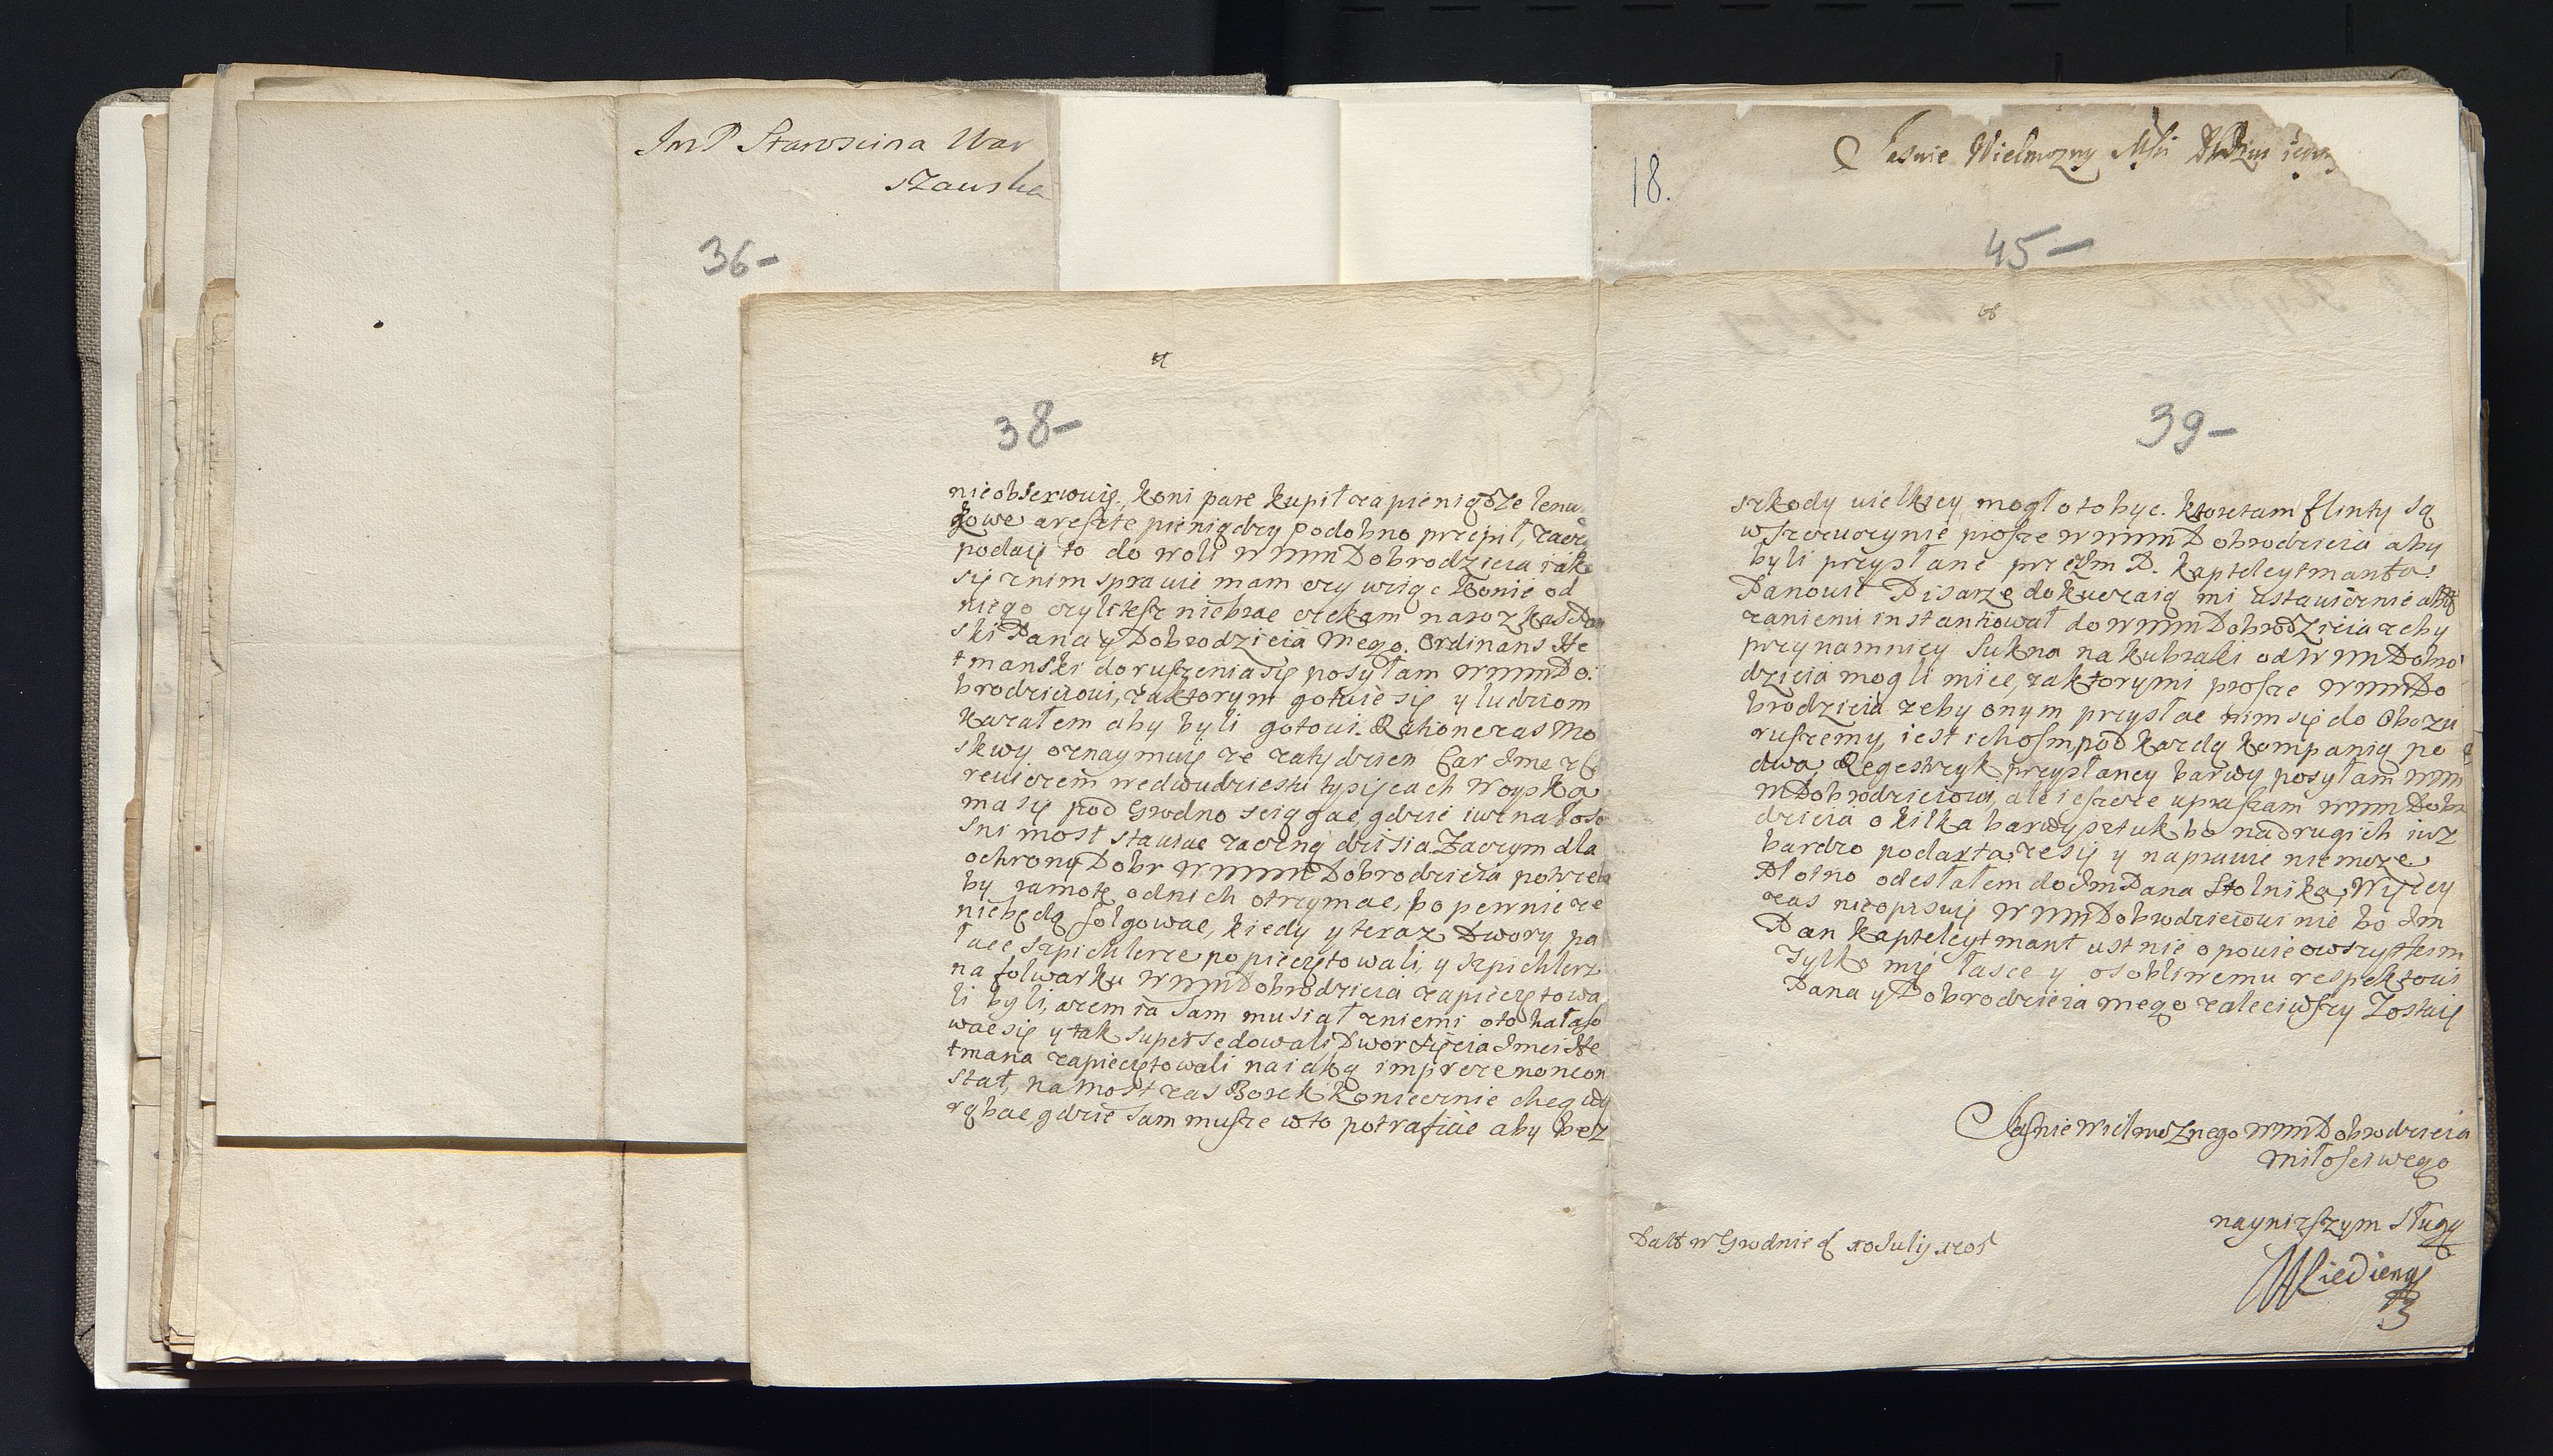 JmP Starościna War
szawska
36-
18.
Jasnie Wielmozny
45-
38-
nieobserwuię, koni pare kupił za pieniądze lenu
gowe a reszte pieniędzy podobno przepił, zaczy
podaię to do woli WMM Dobrodzieia iak
się z nim sprawić mam czy wziąć konie od
niego czyli tesz niebrac czekam na rozkas Pan
ski Pana y Dobrodzieia mego. Ordinans He
tmanski do ruszenia się posyłam WMM Do
brodzieiowi, za ktorym gotuie się y ludziom
kazałem aby byli gotowi. Ratione zas Mo
skwy oznaymuię ze za tydzien Car Jme z
rewiczem we dwudziestu tysięcach Woyska
ma się pod Grodno sciągać, gdzie iusz na łoso
sni most stawiac zaczną dzisia. Zaczym dla
ochrony Dobr WMM Dobrodzieia potrzeba
by zamotę od nich otrzymac, bo pewnie ze
niebędą folgować, kiedy y teraz Dwory pa
łace szpichlerze popieczętowali, y szpichlerz
na folwarku WMM Dobrodzieia zapieczętowa
li byli, azem ia sam musiał z niemi oto hałaso
wac się y tak supersedowali Dwor Xięcia Jmci He
tmana zapieczętowali na iaką impreze non con
stat, na most zas Borek koniecznie chcą wy
rąbac, gdzie sam musze w to potrafiac aby bez
39-
szkody wielkiey mogło to byc. Ktore tam flinty są
w Szczuczynie prosze WMM Dobrodzieia aby
były przysłane przez Jm P. Kapteleytmanta.
Panowie Pisarze dokuczaią mi ustawicznie abym
za niemi instantiował do WMM Dobrodzieia zeby
przynamniey sukna na kubraki od WMM Dobro
dzieia mogli miec, za ktorymi prosze WMM Do
brodzieia zeby onym przysłac nim się do Obozu
ruszemy, iest ich osm, pod kazdą kompanią po
dwa, Regestrzyk przysłaney barwy posyłam WM
M Dobrodzieiowi, ale ieszcze upraszam WMM Dobro
dzieia o kilka barwy sztuk bo na drugich iusz
bardzo podarta, ze się y naprawic niemoze
Płotno odesłałem do Jm Pana Stolnika, Więcey
zas nieopisuię WMM Dobrodzieiowi nie bo Jm
Pan Kapteleytmant ustnie opowie owszystkim
Tylko mię łasce y osobliwemu respektowi
Pana y Dobrodzieia mego zaleciwszy Zostaię
Jasnie Wielmoznego WMM Dobrodzieia
Miłosciwego
naynizszym sługą
Datt w Grodnie d 10 Julij 1705